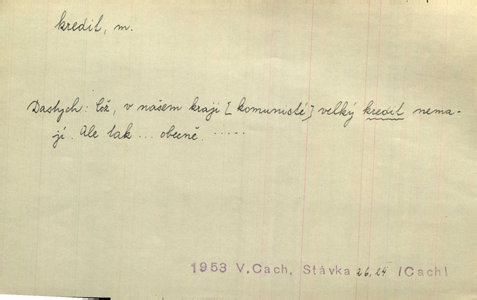 kredit, m.
Dastych: Což, v našem kraji [komunisté] velký kredit nema-
jí. Ale tak ... obecně. .....
1953 V.Cach, Stávka 26,24 (Cach)